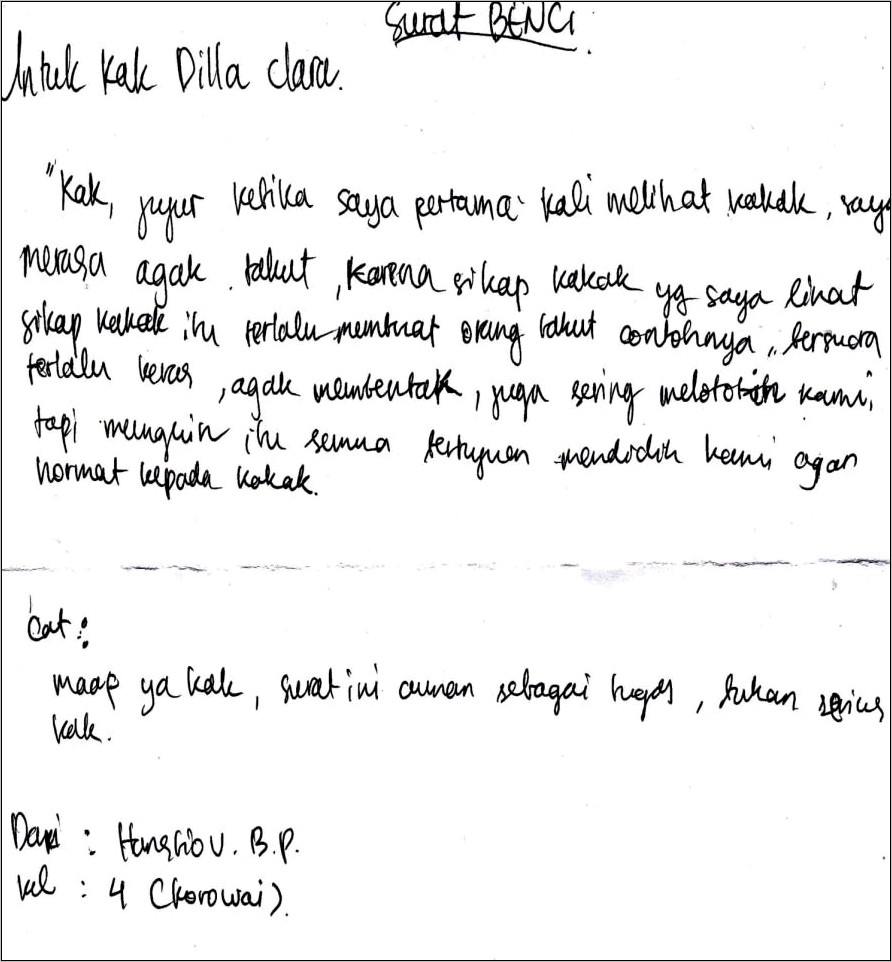 Surat BENCI.
Untuk Kak Dilla Clara.
"Kak, jujur ketika saya pertama kali melihat kakak, saya
merasa agak takut, karena sikap kakak yg saya lihat
sikap kakak itu terlalu membuat orang takut contohnya, bersuara
terlalu keras, agak membentak, juga sering kami,
tapi mungkin itu semua bertujuan mendidik kami agar
hormat kepada kakak.
Cat:
maap ya kak, surat ini cuman sebagai tugas, bukan serius
kak.
Dari : B.P.
kel : 4 (korowai).